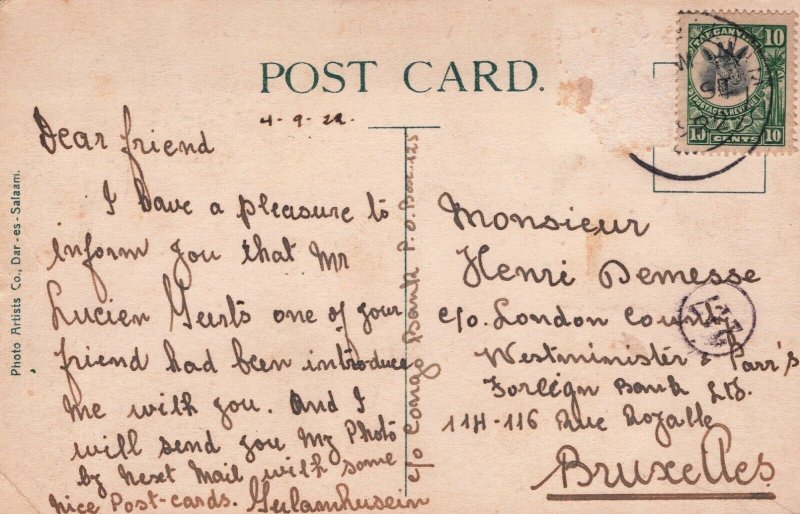 POST CARD.
4-9-22.
Dear friend
I have a pleasure to
inform you that Mr
Lucien Geerts one of your
friend had been introduce
me with you. And I
will send you My Photo
by next Mail with some
nice Post-cards. Gulamhusein
c/o Congo Bank P.O. Box. 125
Monsieur
Henri Demesse
c/o. London County
Westminister & Parr's
Foreign Bank Ltd.
114-116 Rue Royalle
Bruxelles
Photo Artists Co., Dar-es-Salaam.
TANGANYIKA
10
POSTAGE & REVENUE
10 CENTS 10